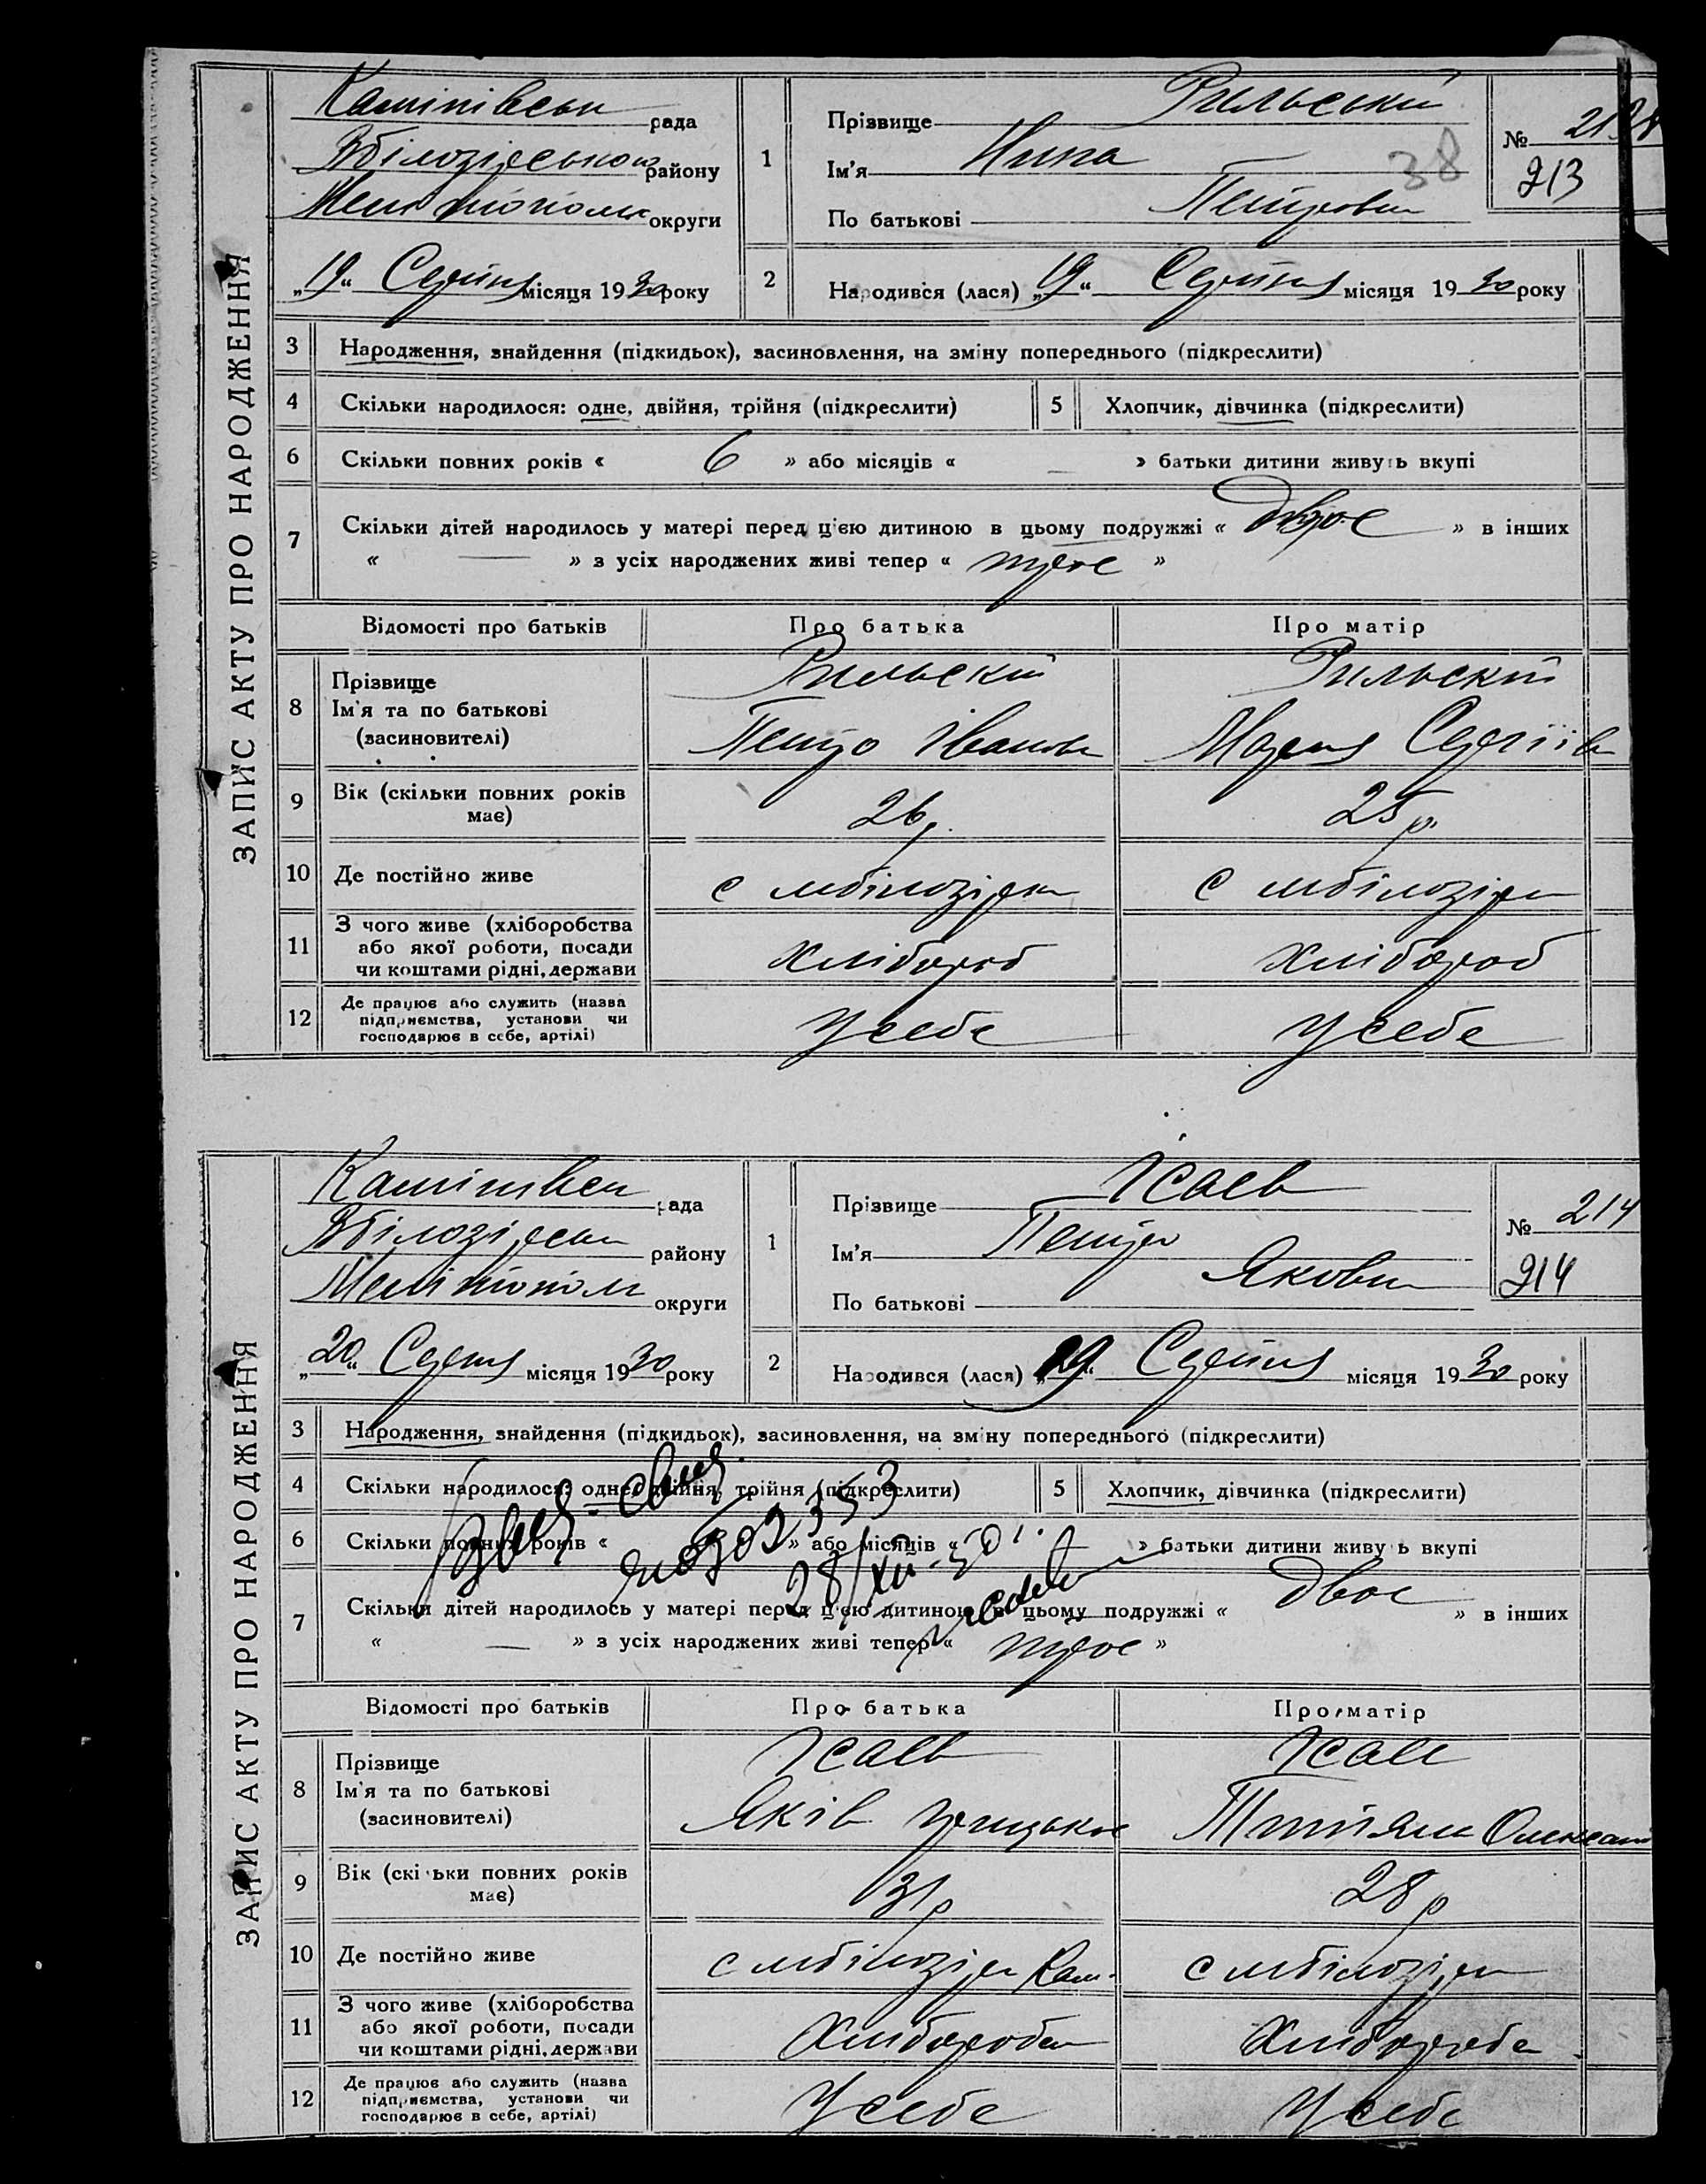 ЗАПИС АКТУ ПРО НАРОДЖЕННЯ
рада
району
Мелітополь округи
„19“ Серпня місяця 1930 року
1
Прізвище Рильський
Ім'я Нина
38
По батькові Петровна
№
213
2
Народився (лася) „19“ Серпня місяця 1930 року
3 Народження, знайдення (підкидьок), засиновлення, на зміну попереднього (підкреслити)
4 Скільки народилося: одне, двійня, трійня (підкреслити)
5 Хлопчик, дівчинка (підкреслити)
6 Скільки повних років « 6 » або місяців « — » батьки дитини живуть вкупі
7 Скільки дітей народилось у матері перед ц'єю дитиною в цьому подружжі « двое » в інших
« — » з усіх народжених живі тепер « трое »
Відомості про батьків Про батька Про матір
8 Прізвище
Ім'я та по батькові
(засиновителі)
Рильский
Петро Іванов
Рильский
Мария Сергіїв
9 Вік (скільки повних років
має)
26р.
25р.
10 Де постійно живе
с мбілозірка
с мбілозірка
11 З чого живе (хліборобства
або якої роботи, посади
чи коштами рідні, держави
хлібороб
хлібороб
12 Де працює або служить (назва
підприємства, установи чи
господарює в себе, артілі)
У себе
У себе
ЗАПИС АКТУ ПРО НАРОДЖЕННЯ
рада
району
Мелітополь округи
„20“ Серпня місяця 1930 року
1
Прізвище Ісаев
Ім'я Петро
По батькові Якович
№ 214
214
2
Народився (лася) „19“ Серпня місяця 1930 року
3 Народження, знайдення (підкидьок), засиновлення, на зміну попереднього (підкреслити)
4 Скільки народилося: одне, двійня, трійня (підкреслити)
5 Хлопчик, дівчинка (підкреслити)
6 Скільки повних років « » або місяців « » батьки дитини живуть вкупі
28/XII-50 г.
7 Скільки дітей народилось у матері перед ц'єю дитиною в цьому подружжі « двое » в інших
« — » з усіх народжених живі тепер « трое »
Відомості про батьків Про батька Про матір
8 Прізвище
Ім'я та по батькові
(засиновителі)
Ісаев
Яків
Ісаев
Титяна Олександ
9 Вік (скільки повних років
має)
31р
28р
10 Де постійно живе
с мбілозірка Кам.
с мбілозірка
11 З чого живе (хліборобства
або якої роботи, посади
чи коштами рідні, держави
Хлібороба
Хлібороба
12 Де працює або служить (назва
підприємства, установи чи
господарює в себе, артілі)
У себе
У себе